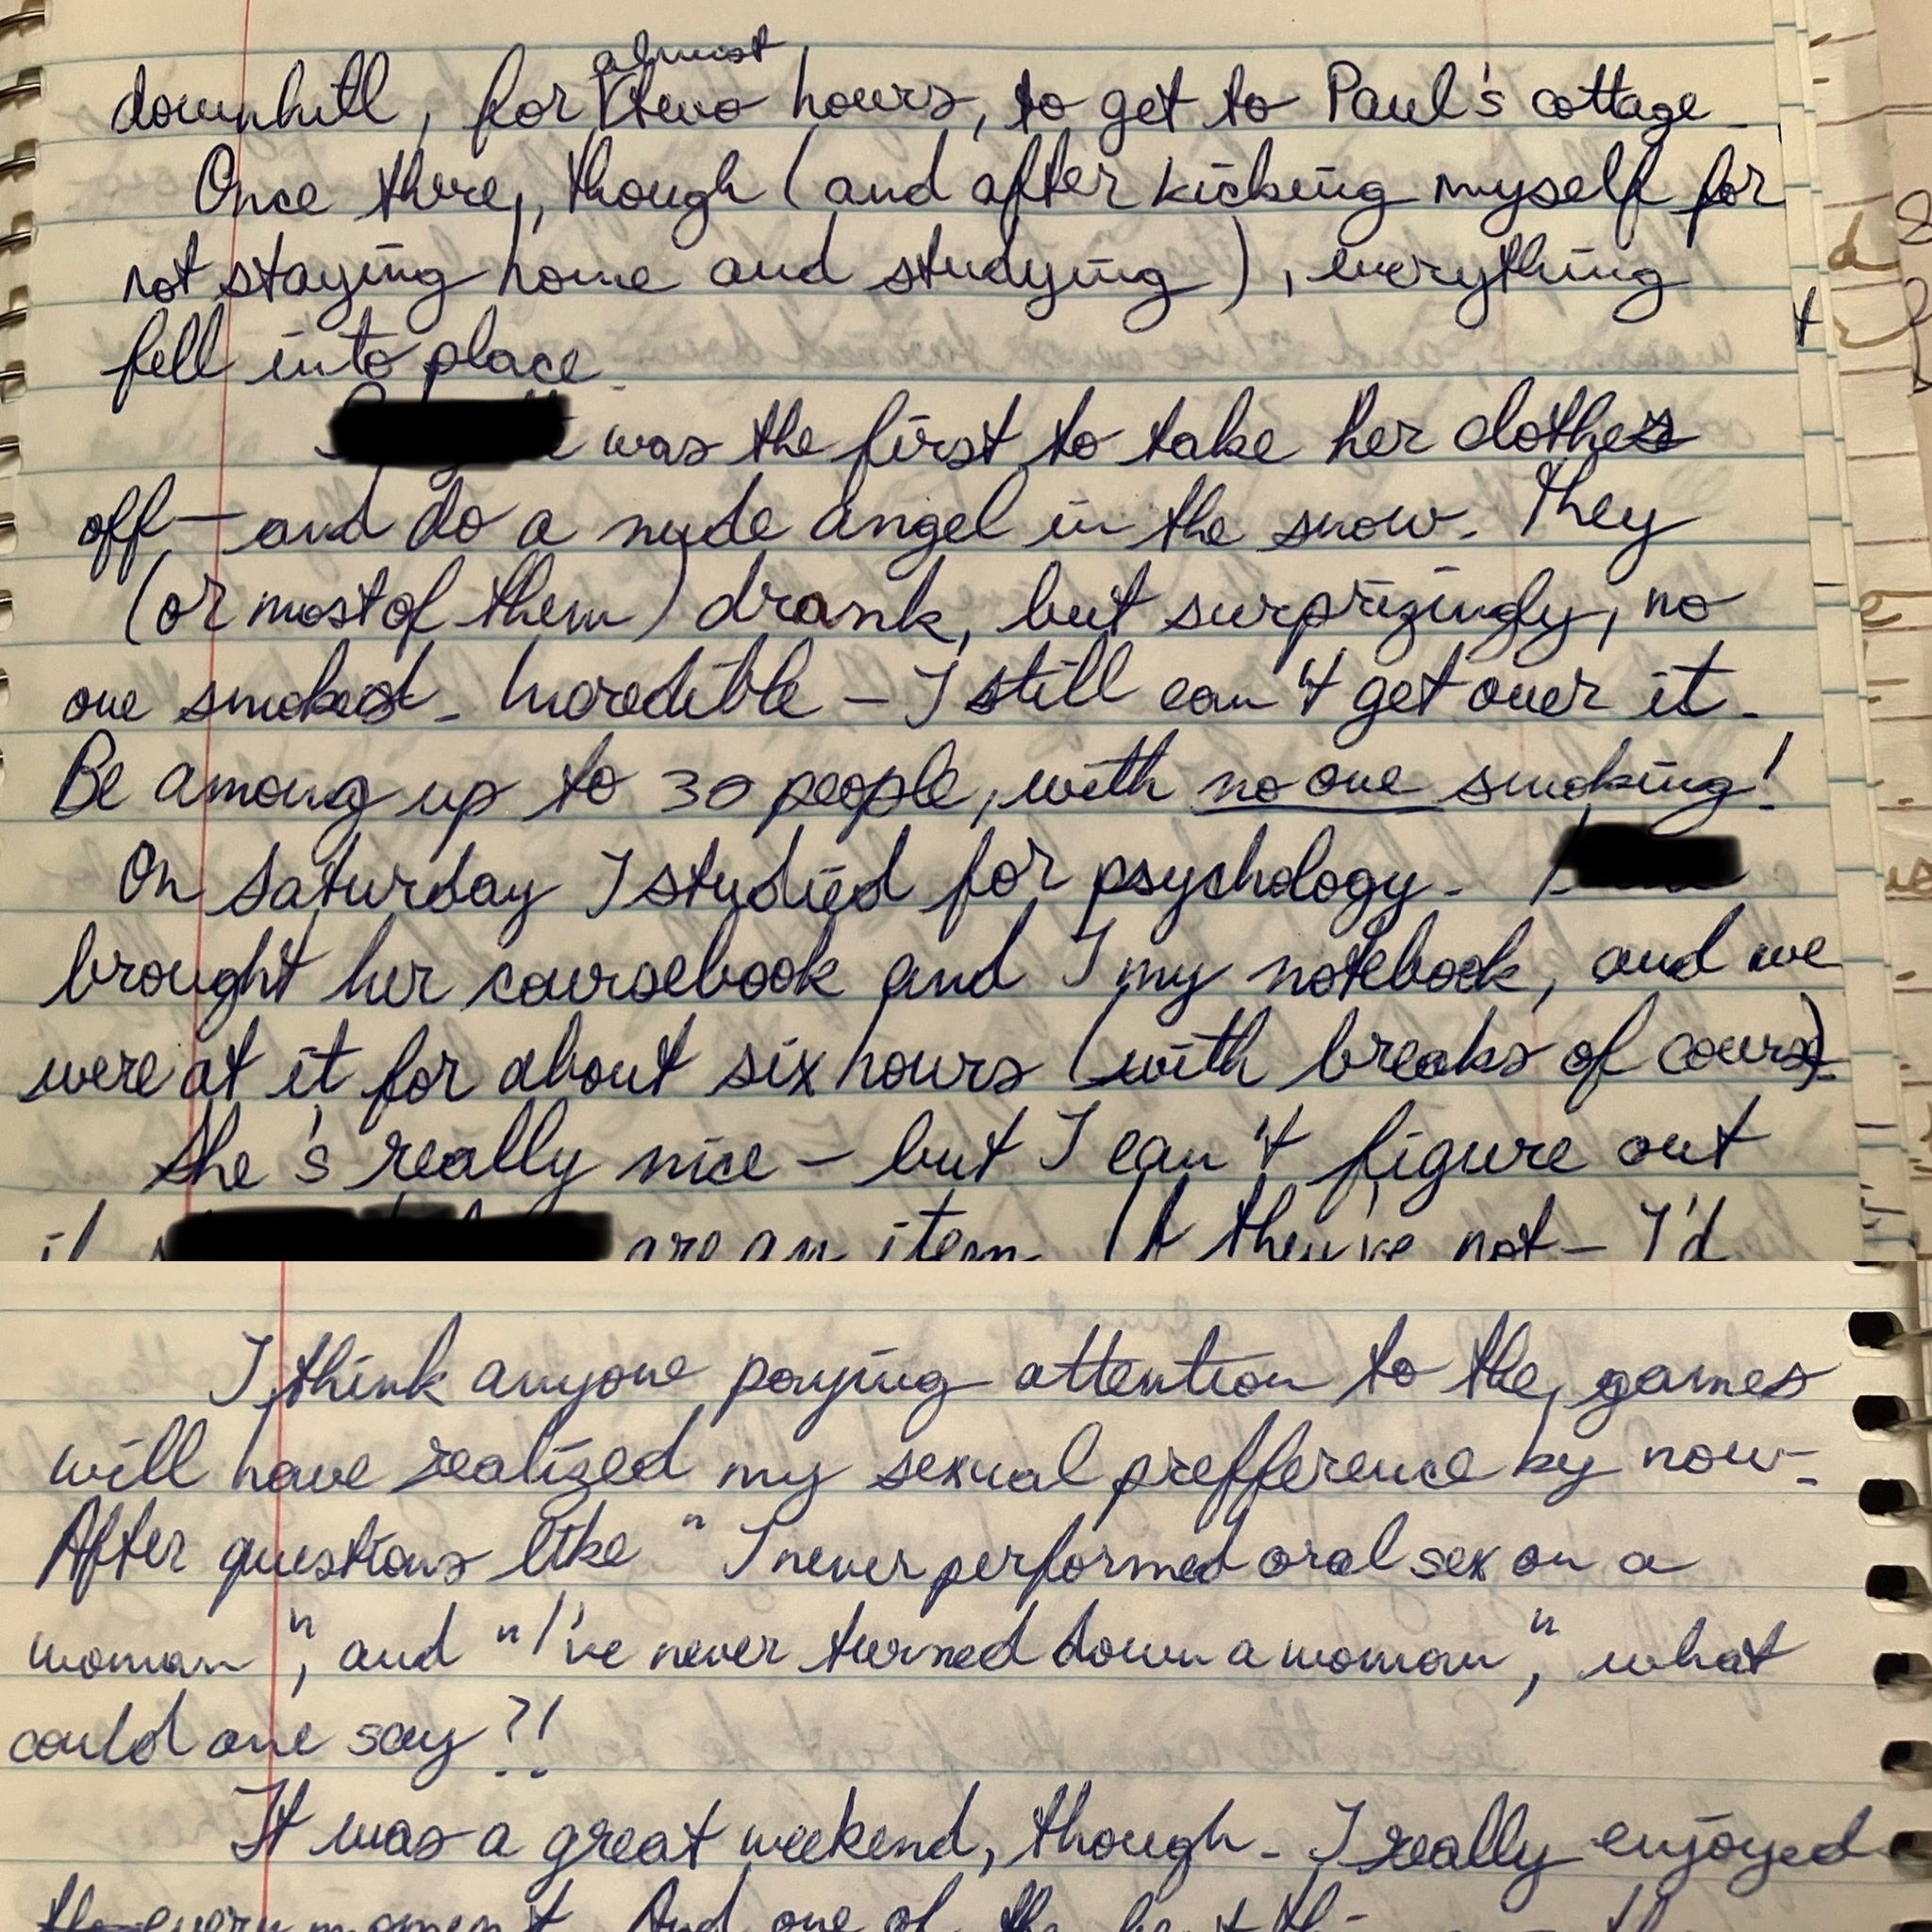 almost
downhill, for two hours, to get to Paul's cottage.
Once there, though (and after kicking myself for
not staying home and studying), everything
fell into place.
was the first to take her clothes
off — and do a nude angel in the snow. They
(or most of them) drank, but surprizingly, no
one smoked. Incredible – I still can't get over it.
Be among up to 30 people, with no one smoking!
On Saturday I studied for psychology.
brought her coursebook and I my notebook, and we
were at it for about six hours (with breaks of course).
She's really nice – but I can't figure out
if are an item. If they're not – I'd
I think anyone paying attention to the games
will have realized my sexual prefference by now.
After questions like "I never performed oral sex on a
woman", and "I've never turned down a woman", what
could one say?!
It was a great weekend, though. I really enjoyed
every moment. And one of the best